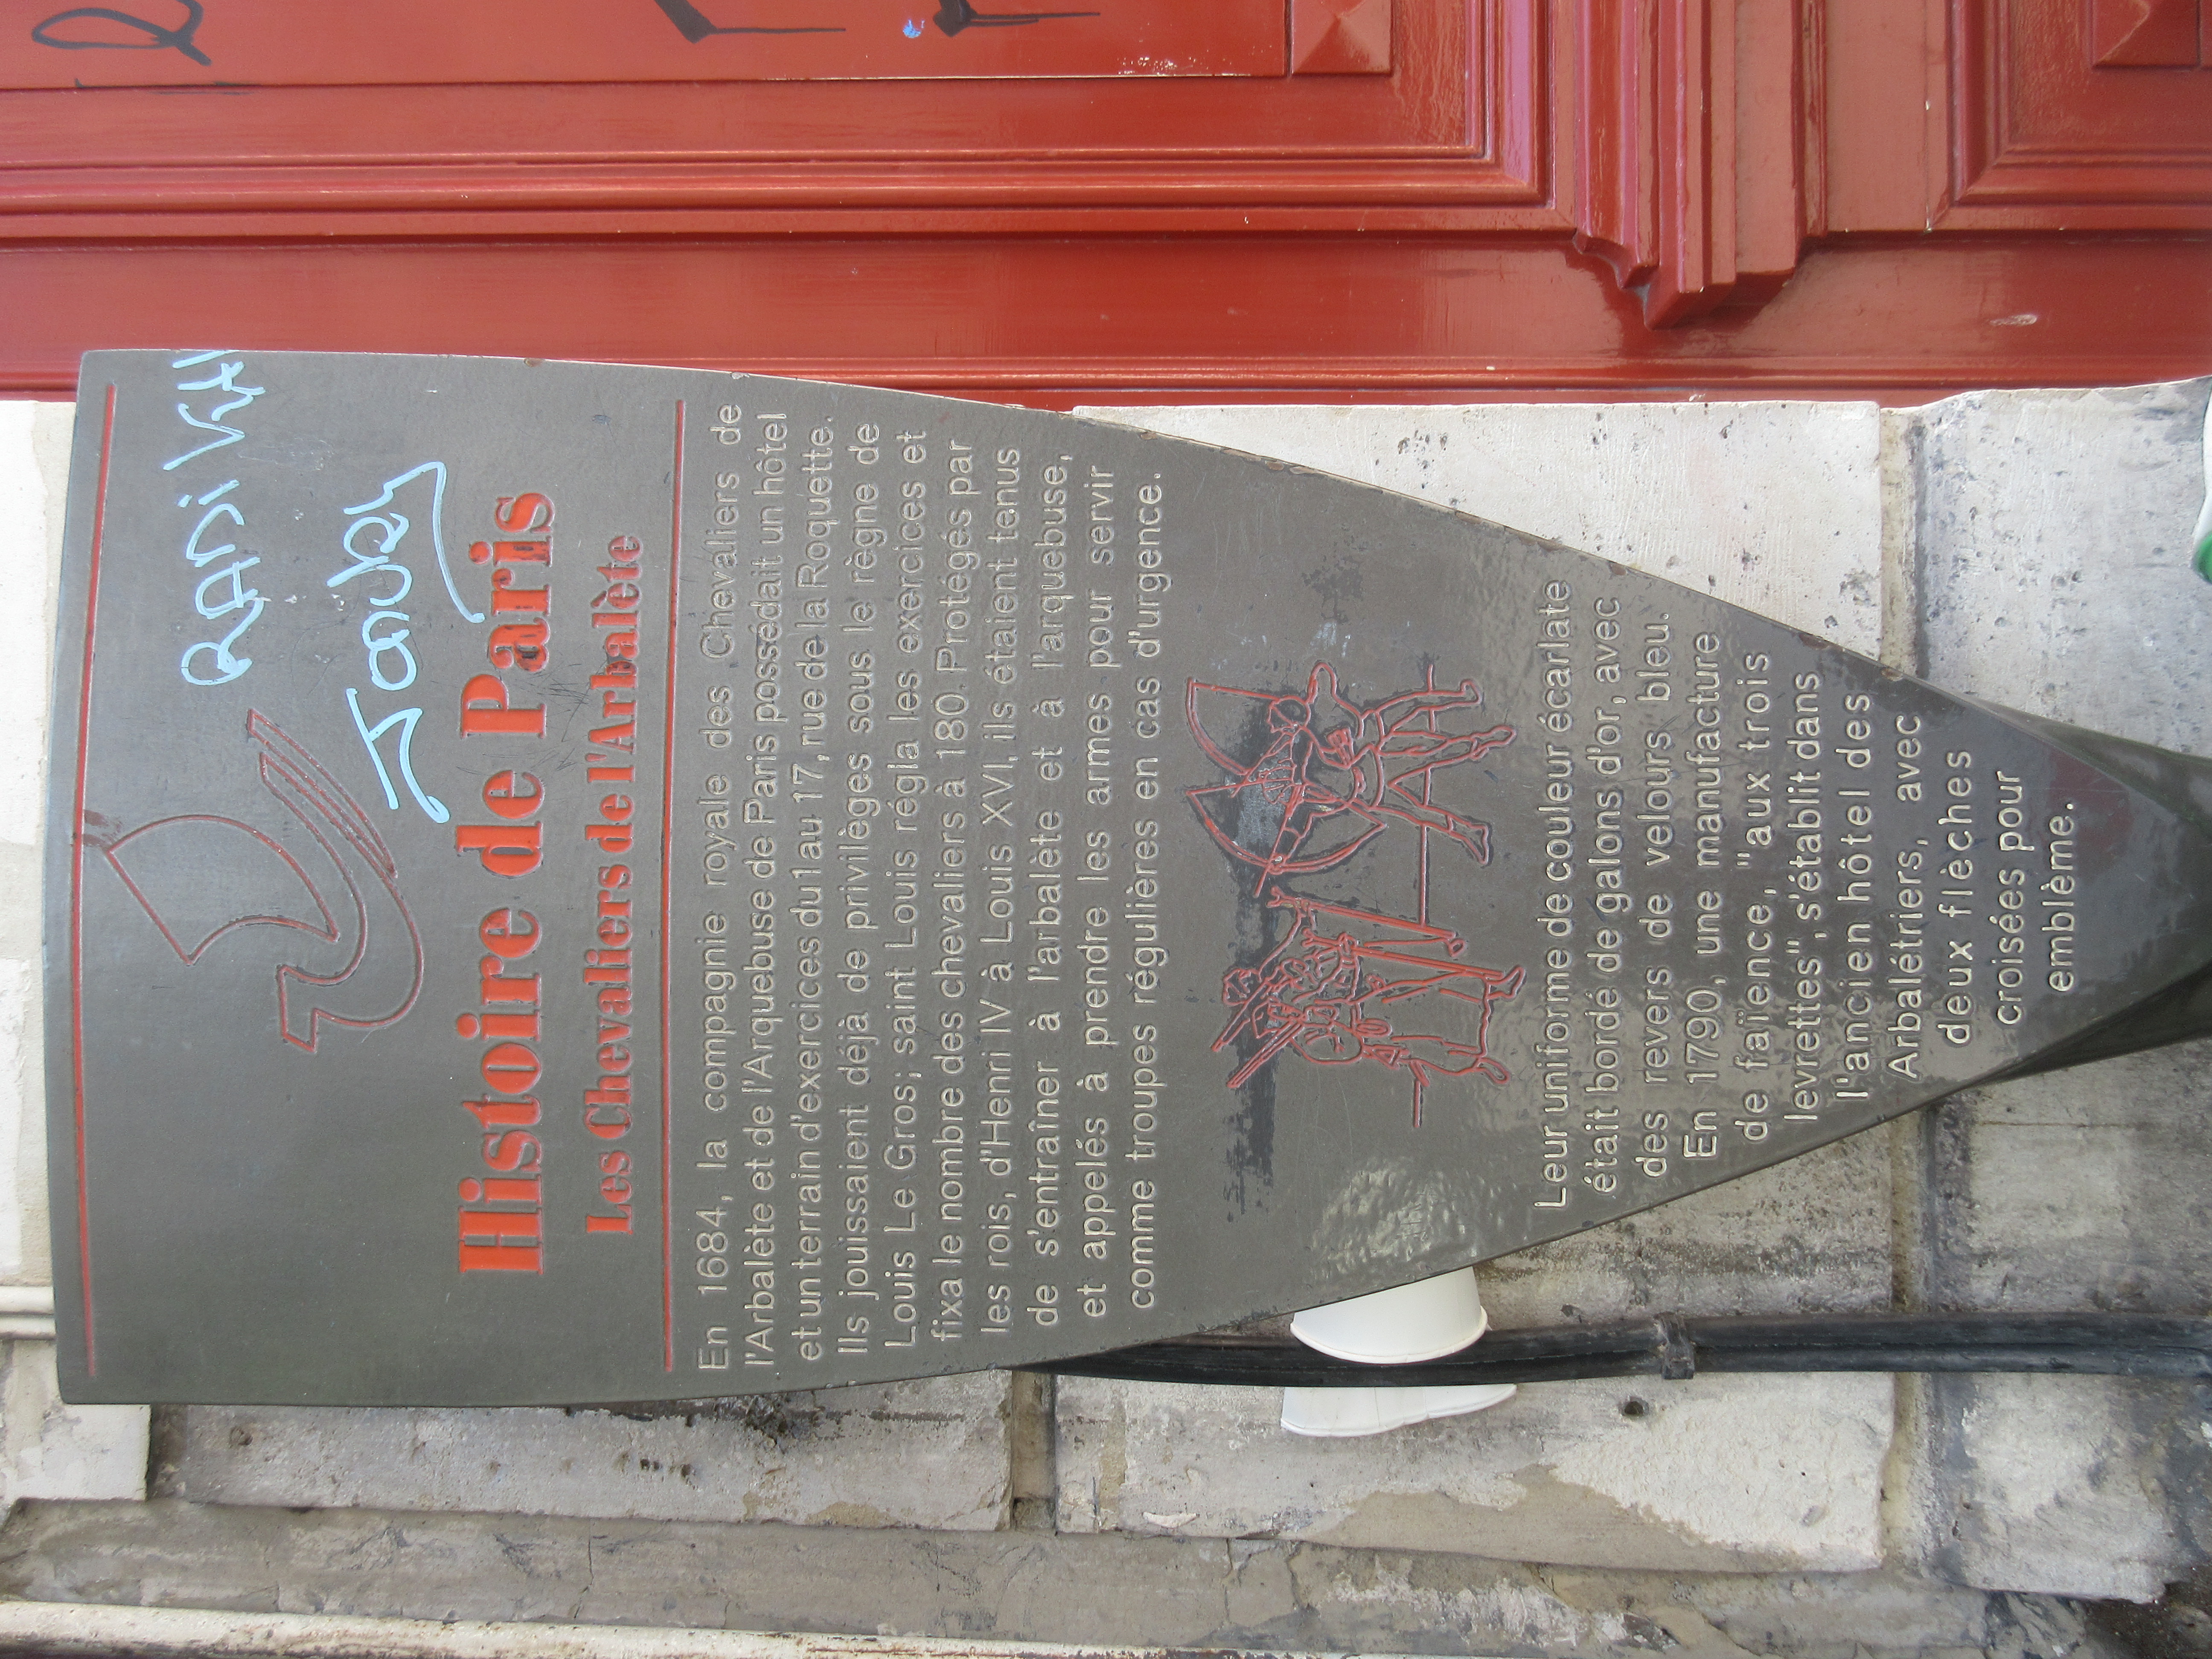 RADi
Histoire de Paris
Les Chevaliers de l'Arbalète
En 1684, la compagnie royale des Chevaliers de
l'Arbalète et de l'Arquebuse de Paris possédait un hôtel
et un terrain d'exercices du 1 au 17, rue de la Roquette.
Ils jouissaient déjà de privilèges sous le règne de
Louis Le Gros; saint Louis régla les exercices et
fixa le nombre des chevaliers à 180. Protégés par
les rois, d'Henri IV à Louis XVI, ils étaient tenus
de s'entraîner à l'arbalète et à l'arquebuse,
et appelés à prendre les armes pour servir
comme troupes régulières en cas d'urgence.
Leur uniforme de couleur écarlate
était bordé de galons d'or, avec
des revers de velours bleu.
En 1790, une manufacture
de faïence, "aux trois
levrettes", s'établit dans
l'ancien hôtel des
Arbalétriers, avec
deux flèches
croisées pour
emblème.